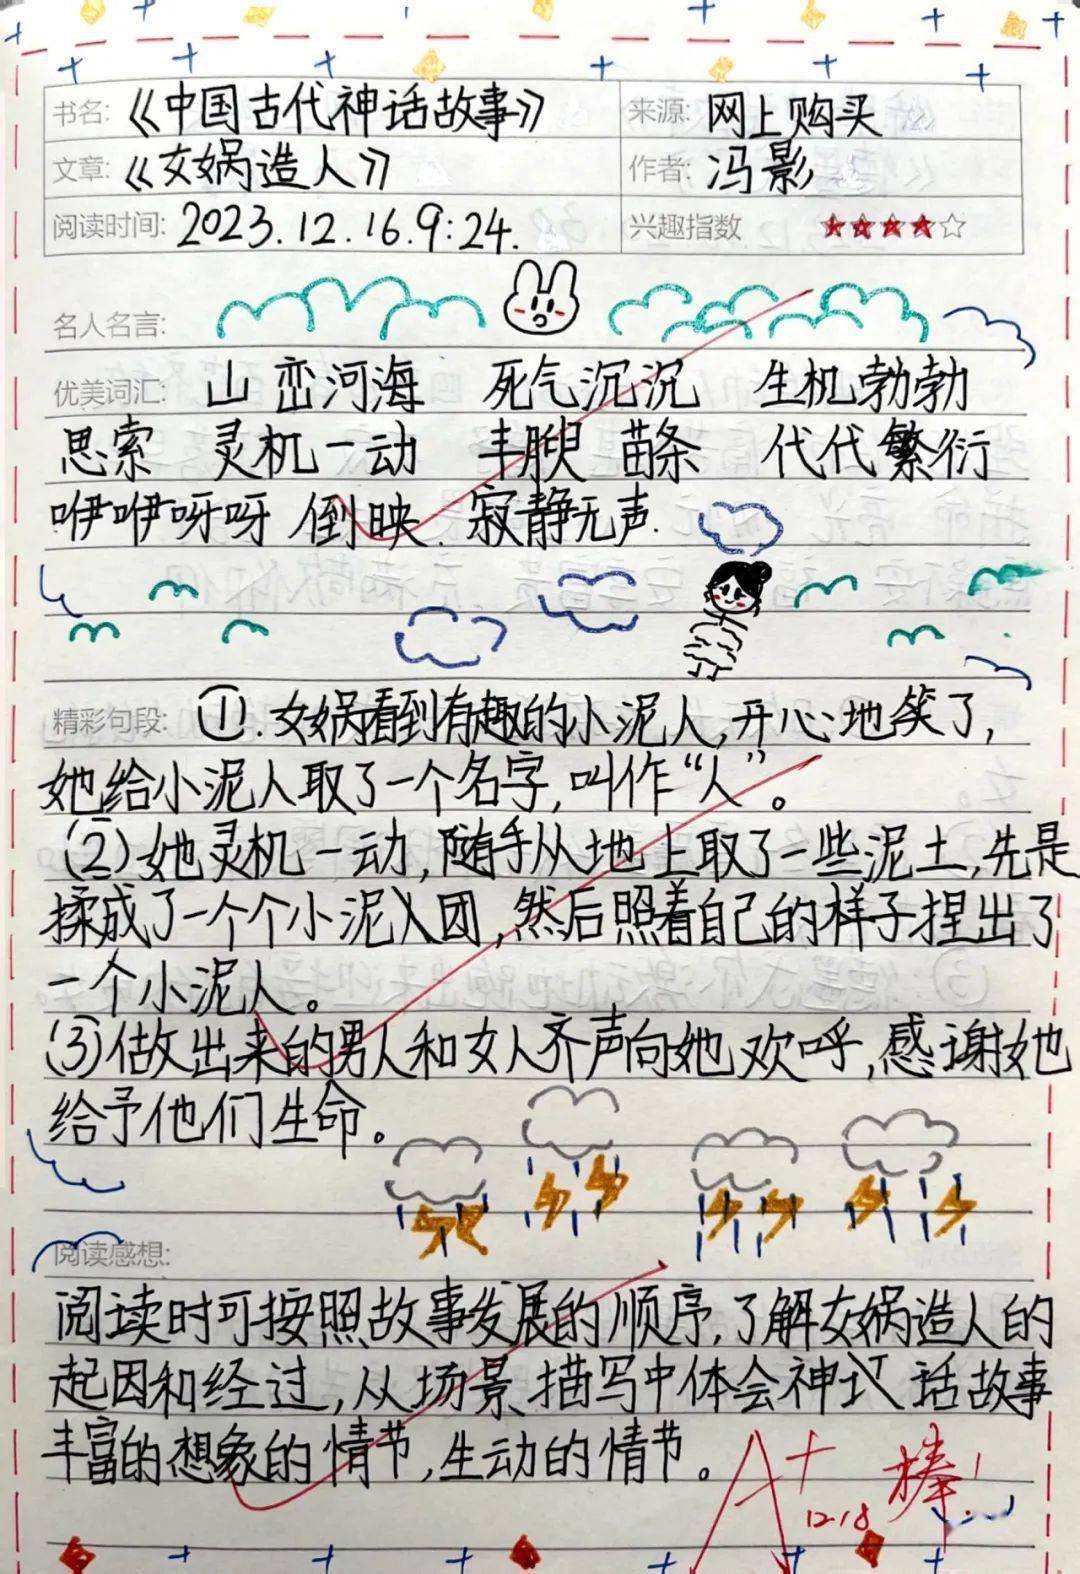 书名: 《中国古代神话故事》 来源: 网上购买
文章: 《女娲造人》 作者: 冯影
阅读时间: 2023.12.16.9:24. 兴趣指数 ★★★★☆
名人名言:
优美词汇: 山峦河海 死气沉沉 生机勃勃
思索 灵机一动 丰腴 苗条 代代繁衍
咿咿呀呀 倒映 寂静无声.
精彩句段: ①.女娲看到有趣的小泥人,开心地笑了,
她给小泥人取了一个名字,叫作“人”。
(2)她灵机一动,随手从地上取了一些泥土,先是
揉成了一个个小泥人团,然后照着自己的样子捏出了
一个小泥人。
(3)做出来的男人和女人齐声向她欢呼,感谢她
给予他们生命。
阅读感想:
阅读时可按照故事发展的顺序,了解女娲造人的
起因和经过,从场景描写中体会神话故事
丰富的想象的情节,生动的情节。
A+ 棒!
12.18